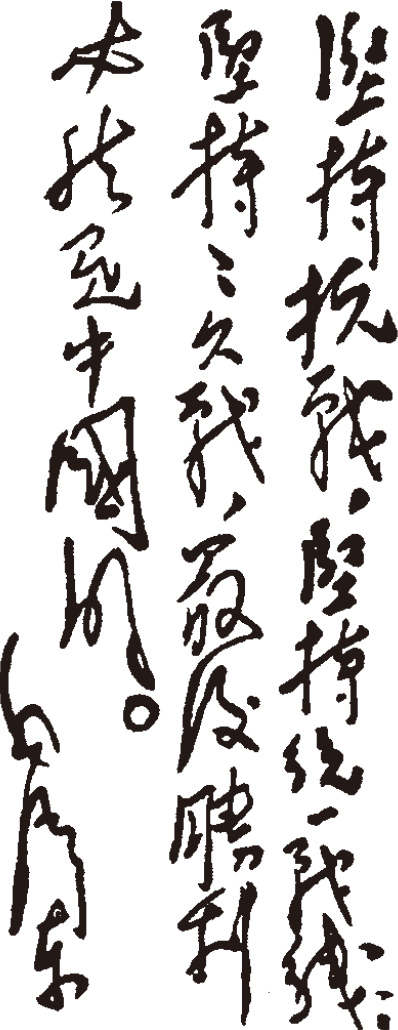 堅持抗戰，堅持統一戰綫，
堅持々久戰，最後勝利
必然是中國的。
毛澤東